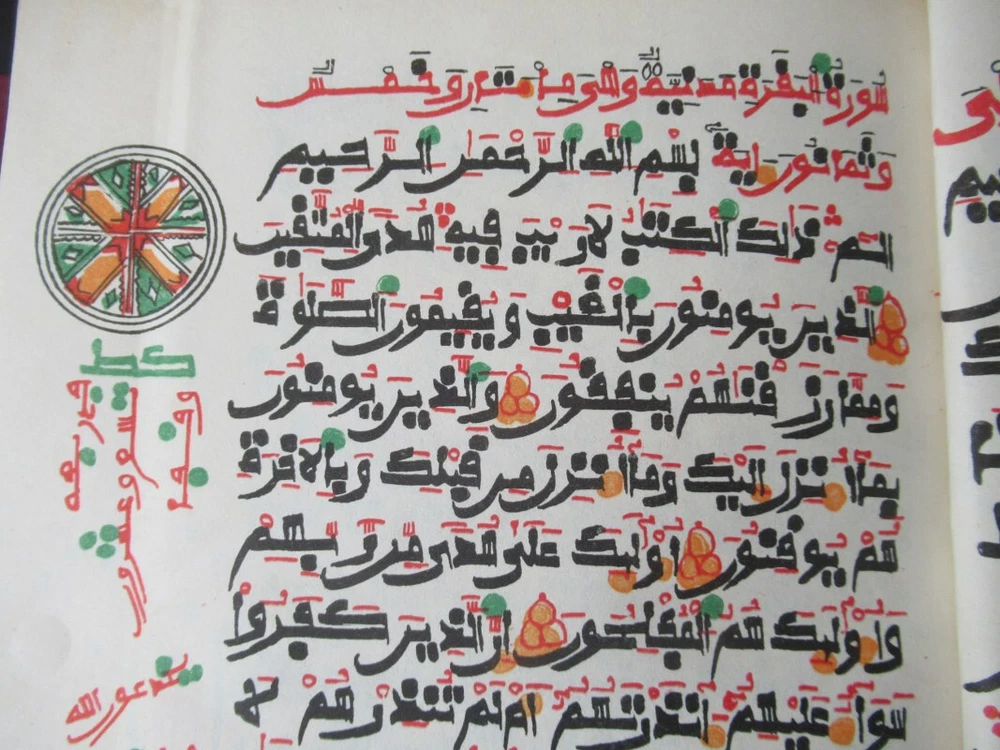 سورة البقرة مدنية وهى مايتان وخمس
وثمانون اية بسم الله الرحمن الرحيم
الم ذلك الكتب لا ريب فيه هدى للمتقين
الذين يومنون بالغيب ويقيمون الصلوة
ومما رزقنهم ينفقون والذين يومنون
بما أنزل إليك وما أنزل من قبلك وبالاخرة
هم يوقنون اوليك على هدى من ربهم
واوليك هم المفلحون ان الذين كفروا
سواء عليهم انذرتهم ام لم تنذرهم لا
يخدعون الله